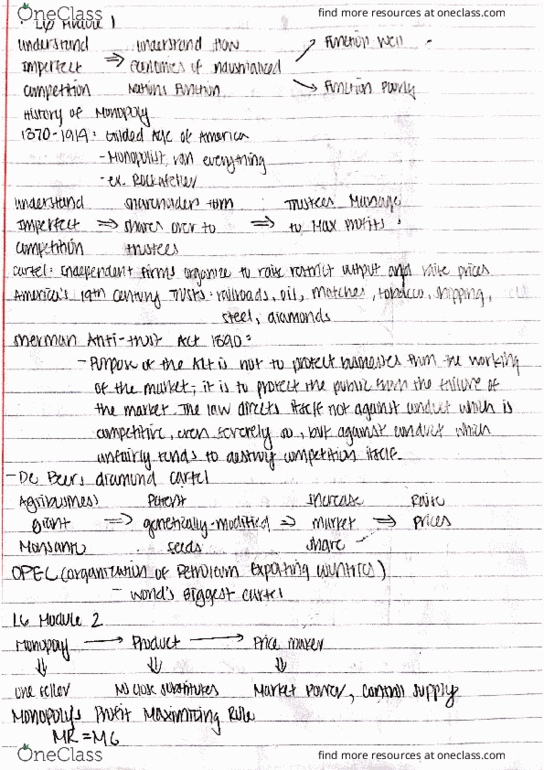 OneClass find more resources at oneclass.com
L6 Module 1
understand understand how Function well
Imperfect ⇒ economies of industrialized
competition Nations Function Function Poorly
History of Monopoly
1870-1914: Gilded Age of America
- Monopolist ran everything
- ex. Rockafeller
understand shareholders turn Trustees Manage
Imperfect ⇒ shares over to ⇒ to Max Profits
competition trustees
cartel: independent firms organize to raise restrict output and raise prices
America's 19th century Trusts: railroads, oil, matches, tobacco, shipping,
steel, diamonds
Sherman Anti-trust Act 1890:
- Purpose of the Act is not to protect businesses from the working
of the market; it is to protect the public from the failure of
the market. The law directs itself not against conduct which is
competitive, even severely so, but against conduct which
unfairly tends to destroy competition itself.
- De Beers diamond cartel
Agribusiness Patent increase Raise
Giant ⇒ genetically-modified ⇒ market ⇒ prices
Monsanto seeds share
OPEC (organization of Petroleum Exporting Countries)
- world's Biggest cartel
L6 Module 2
Monopoly → Product → Price maker
⇓ ⇓ ⇓
one seller No close substitutes Market Power, control supply
Monopoly's Profit Maximizing Rule
MR = MC
OneClass find more resources at oneclass.com